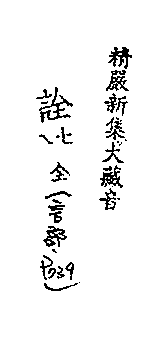 精嚴新集大藏音
詮 全 言部 P039